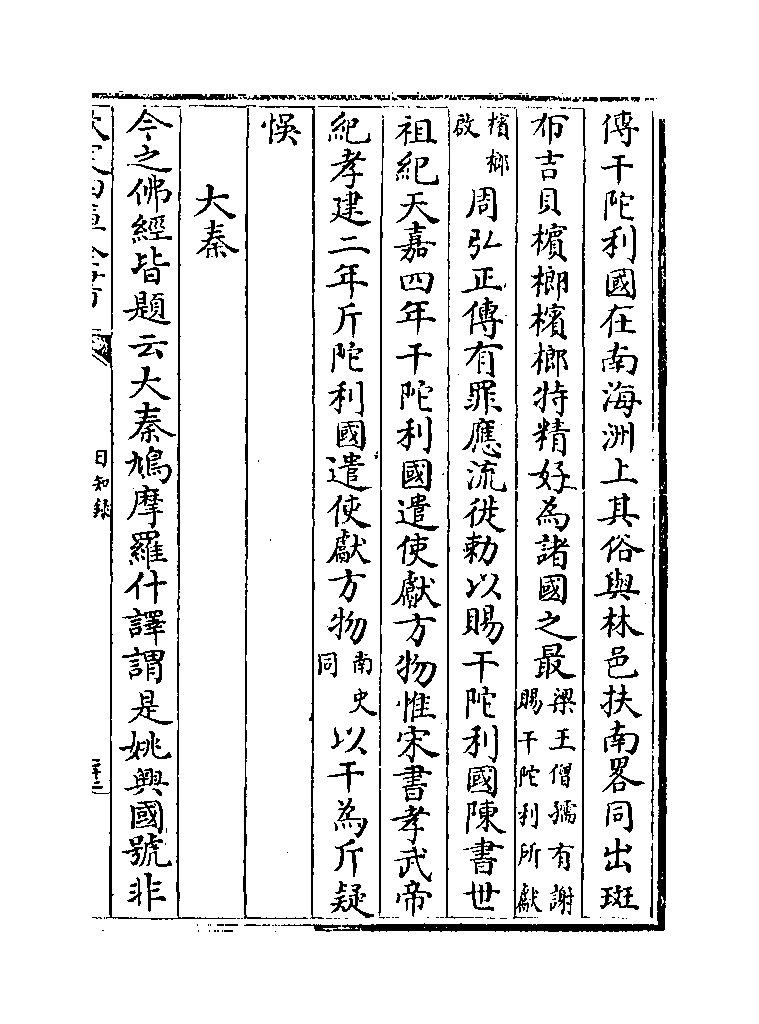 傳干陀利國在南海洲上其俗與林邑扶南畧同出斑
布吉貝檳榔檳榔特精好為諸國之最梁王僧孺有謝賜干陀利所獻
檳榔啟周弘正傳有罪應流徙勅以賜干陀利國陳書世
祖紀天嘉四年干陀利國遣使獻方物惟宋書孝武帝
紀孝建二年斤陀利國遣使獻方物南史同以干為斤疑
悞
大秦
今之佛經皆題云大秦鳩摩羅什譯謂是姚興國號非
日知錄